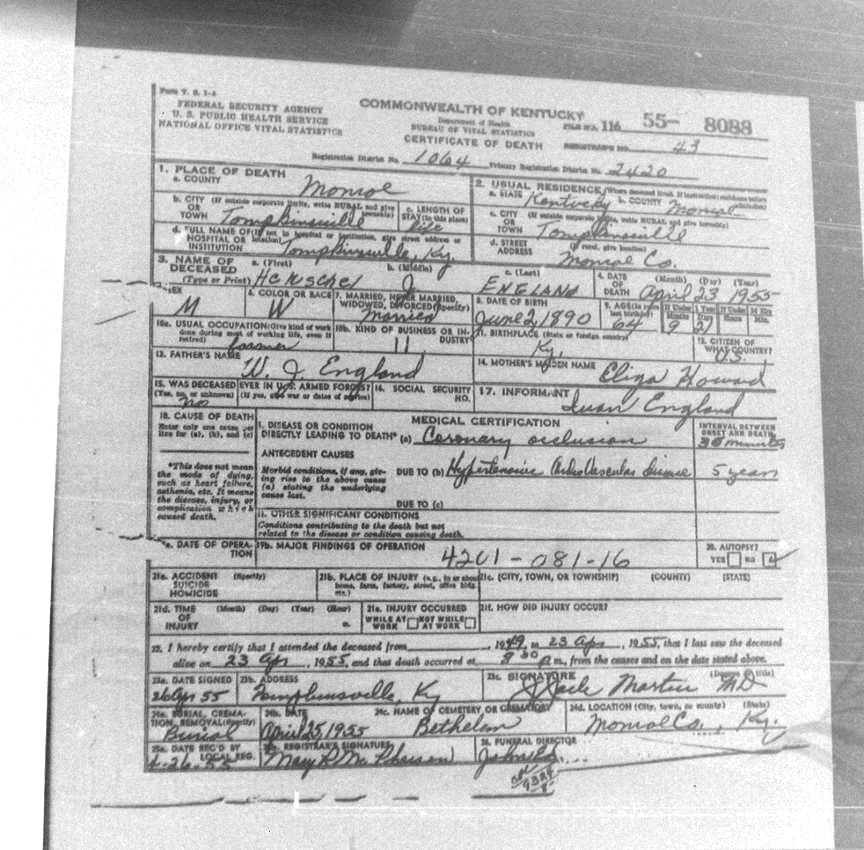 Form V. S. 1-A
FEDERAL SECURITY AGENCY
U. S. PUBLIC HEALTH SERVICE
NATIONAL OFFICE VITAL STATISTICS
COMMONWEALTH OF KENTUCKY
Department of Health
BUREAU OF VITAL STATISTICS
CERTIFICATE OF DEATH
FILE NO. 116 55- 8088
REGISTRAR'S NO. 43
Registration District No. 1064 Primary Registration District No. 2420
1. PLACE OF DEATH
a. COUNTY Monroe
2. USUAL RESIDENCE (Where deceased lived. If institution: residence before
a. STATE Kentucky b. COUNTY Monroe
b. CITY (If outside corporate limits, write RURAL and give
OR
TOWN Tompkinsville
c. LENGTH OF
STAY (in this place)
life
c. CITY (If outside corporate limits, write RURAL and give township)
OR
TOWN Tompkinsville
d. FULL NAME OF (If not in hospital or institution, give street address or
HOSPITAL OR location)
INSTITUTION Tompkinsville, Ky.
d. STREET (If rural, give location)
ADDRESS Monroe Co.
3. NAME OF
DECEASED
(Type or Print)
a. (First) Herschel
b. (Middle) J.
c. (Last) ENGLAND
4. DATE
OF
DEATH
(Month) (Day) (Year)
April 23 1955
SEX
M
6. COLOR OR RACE
W
7. MARRIED, NEVER MARRIED,
WIDOWED, DIVORCED (Specify)
Married
8. DATE OF BIRTH
June 2, 1890
9. AGE (In years
last birthday)
64
10a. USUAL OCCUPATION (Give kind of work
done during most of working life, even if
retired) farmer
10b. KIND OF BUSINESS OR IN-
DUSTRY
11
11. BIRTHPLACE (State or foreign country)
Ky.
12. CITIZEN OF
WHAT COUNTRY?
U.S.
13. FATHER'S NAME
W. J. England
14. MOTHER'S MAIDEN NAME
Eliza Howard
15. WAS DECEASED EVER IN U. S. ARMED FORCES?
(Yes, no, or unknown) (If yes, give war or dates of service)
no
16. SOCIAL SECURITY
NO.
17. INFORMANT
England
18. CAUSE OF DEATH
Enter only one cause per
line for (a), (b), and (c)
MEDICAL CERTIFICATION
I. DISEASE OR CONDITION
DIRECTLY LEADING TO DEATH* (a) Coronary occlusion
INTERVAL BETWEEN
ONSET AND DEATH
30 minutes
*This does not mean
the mode of dying,
such as heart failure,
asthenia, etc. It means
the disease, injury, or
complication which
caused death.
ANTECEDENT CAUSES
Morbid conditions, if any, giv-
ing rise to the above cause
(a) stating the underlying
cause last.
DUE TO (b) Hypertensive Cardio Vascular Disease 5 years
DUE TO (c)
II. OTHER SIGNIFICANT CONDITIONS
Conditions contributing to the death but not
related to the disease or condition causing death.
DATE OF OPERA-
TION
19b. MAJOR FINDINGS OF OPERATION
4201-081-16
20. AUTOPSY?
YES NO
21a. ACCIDENT (Specify)
SUICIDE
HOMICIDE
21b. PLACE OF INJURY (e.g., in or about
home, farm, factory, street, office bldg.
etc.)
21c. (CITY, TOWN, OR TOWNSHIP) (COUNTY) (STATE)
21d. TIME (Month) (Day) (Year) (Hour)
OF
INJURY
21e. INJURY OCCURRED
WHILE AT NOT WHILE
WORK AT WORK
21f. HOW DID INJURY OCCUR?
22. I hereby certify that I attended the deceased from , 1949, to 23 Apr , 1955, that I last saw the deceased
alive on 23 Apr , 1955, and that death occurred at 8 30 p m., from the causes and on the date stated above.
23a. DATE SIGNED
26 Apr 55
23b. ADDRESS
Tompkinsville, Ky
23c. SIGNATURE (Degree or title)
Martin MD
24a. BURIAL, CREMA-
TION, REMOVAL (Specify)
Burial
24b. DATE
April 25, 1955
24c. NAME OF CEMETERY OR CREMATORY
Bethelem
24d. LOCATION (City, town, or county) (State)
Monroe Co., Ky.
25a. DATE REC'D BY
LOCAL REG.
4-26-55
25b. REGISTRAR'S SIGNATURE
Mary R. McPherson
26. FUNERAL DIRECTOR